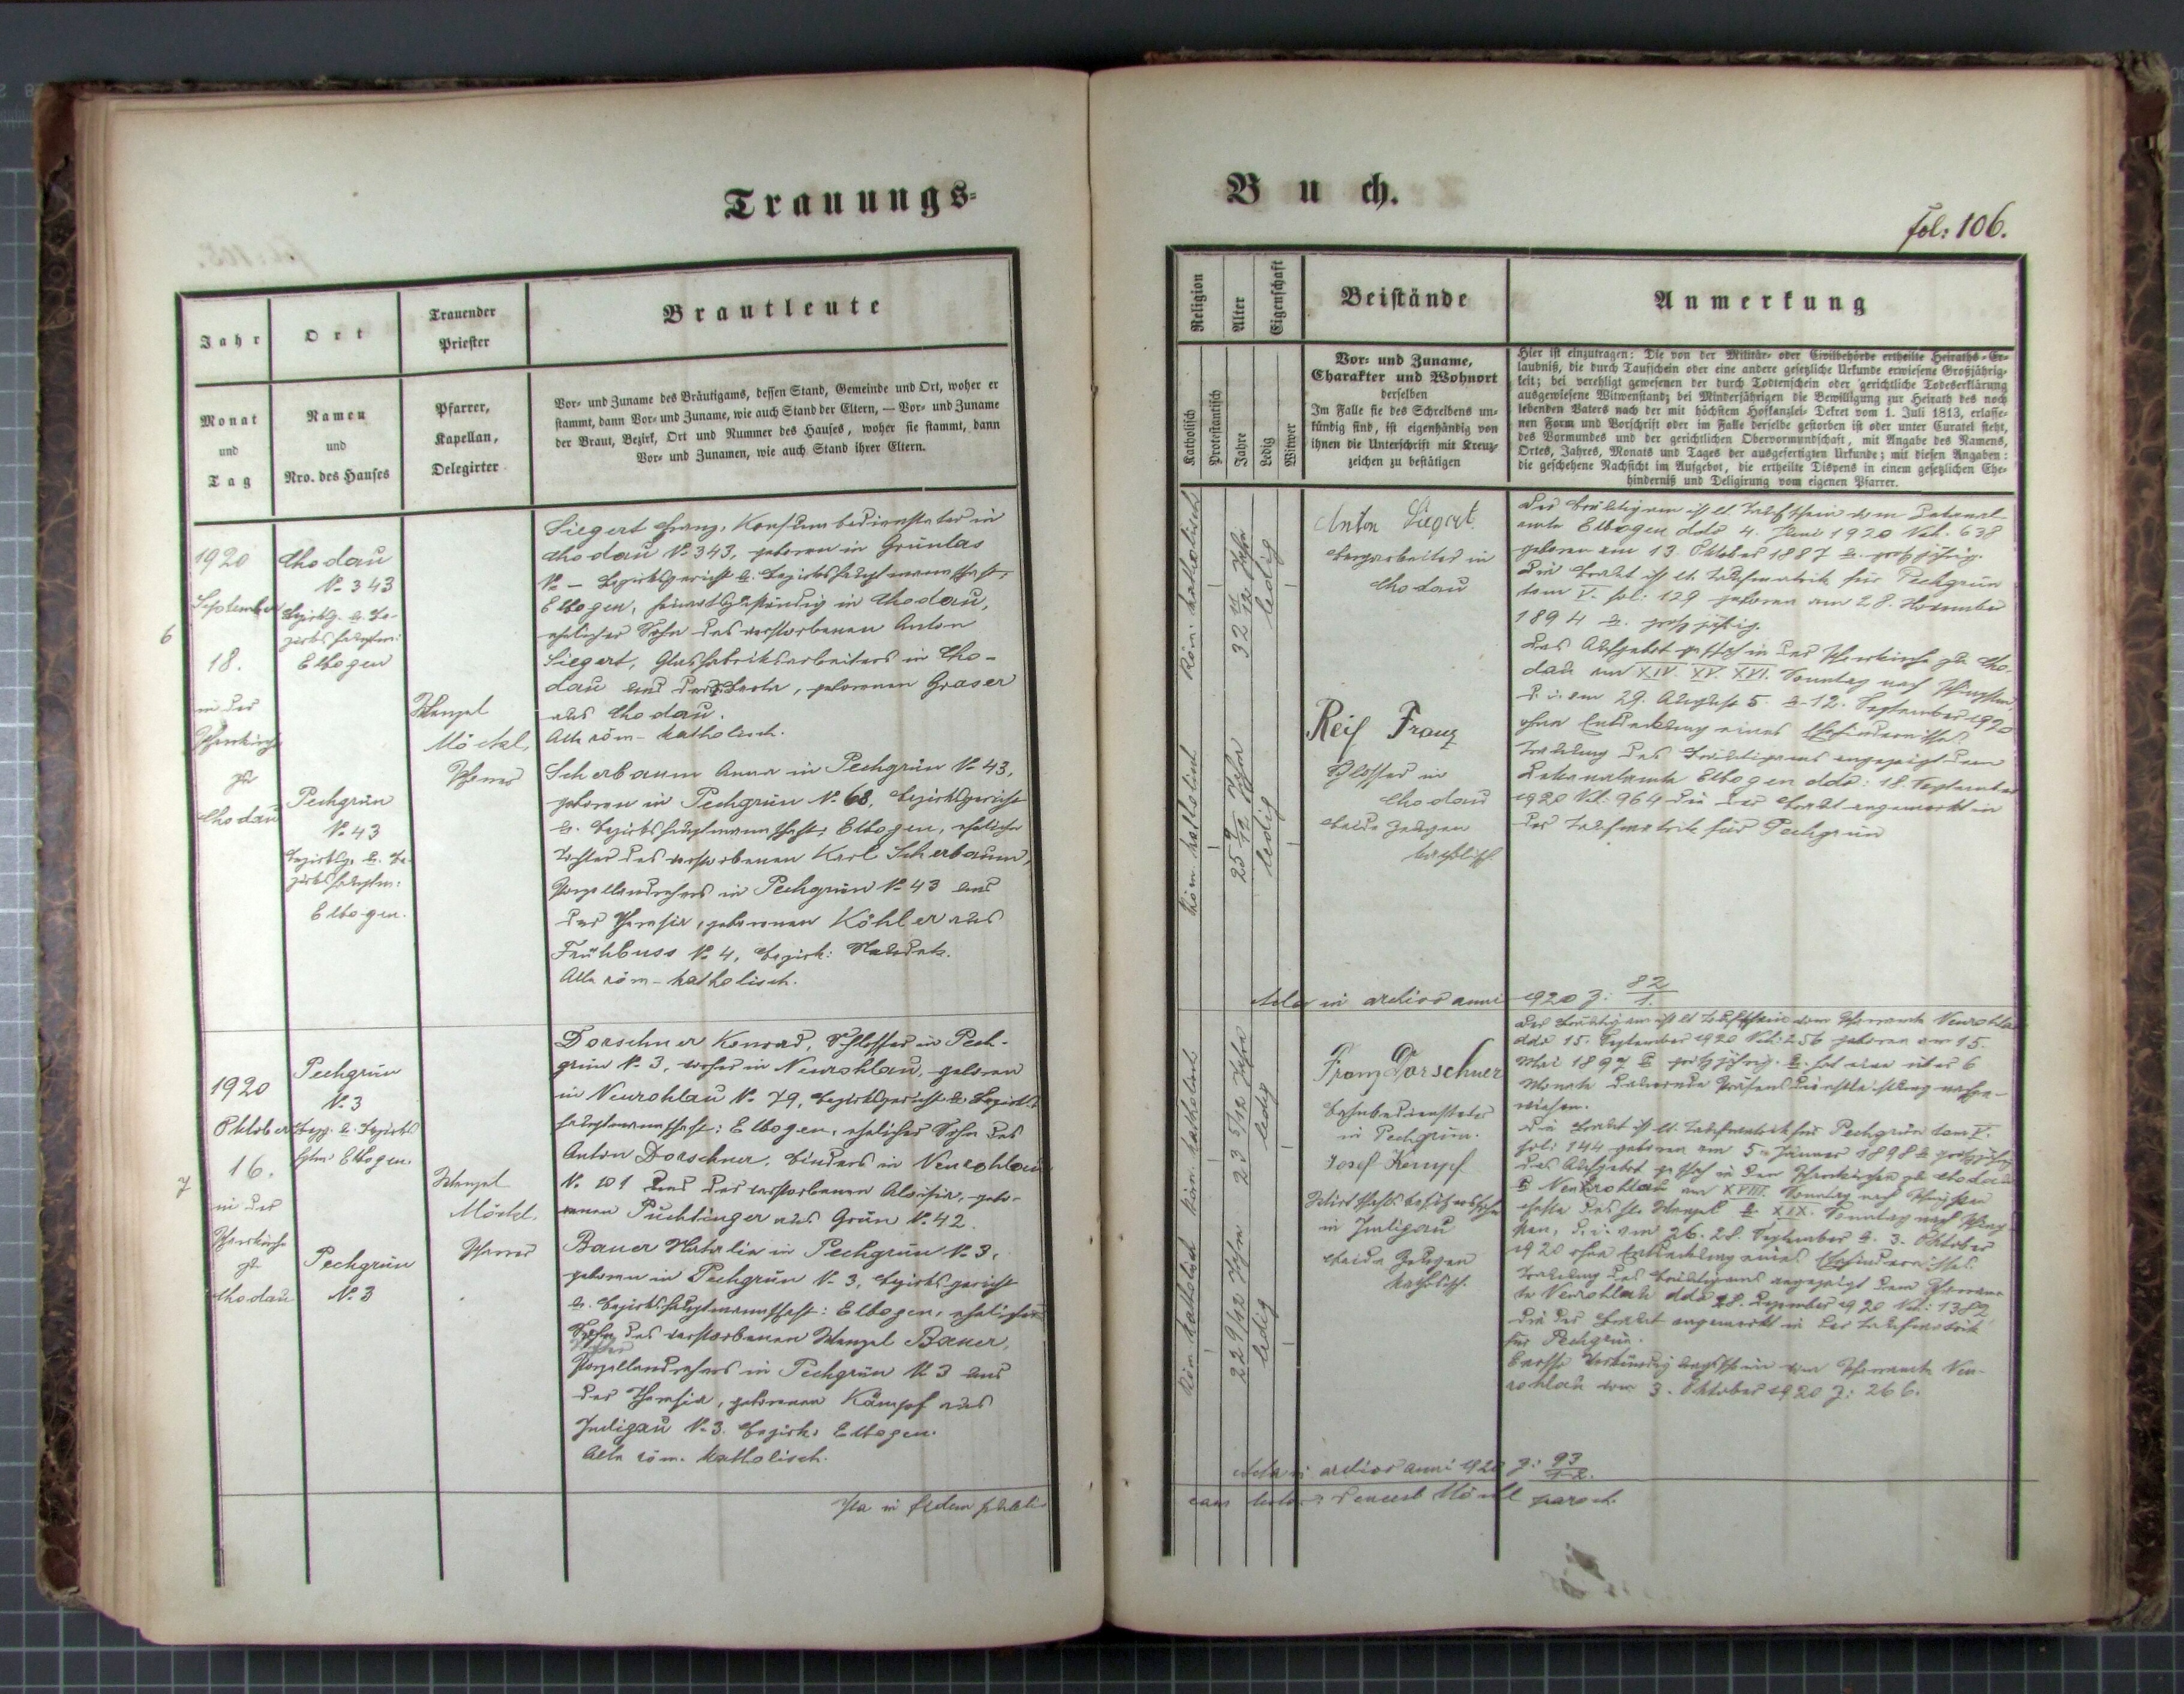 Trauungs-
Buch.
fol: 106.
Jahr
Ort
Trauender
Priester
Brautleute
Monat
und
Tag
Namen
und
Nro. des Hauses
Pfarrer,
Kapellan,
Delegirter
Vor- und Zuname des Bräutigams, dessen Stand, Gemeinde und Ort, woher er
stammt, dann Vor- und Zuname, wie auch Stand der Eltern, — Vor- und Zuname
der Braut, Bezirk, Ort und Nummer des Hauses, woher sie stammt, dann
Vor- und Zunamen, wie auch Stand ihrer Eltern.
6
1920
September
18.
in der
Pfarrkirche
zu
Chodau
Chodau
No 343
Bezirksg. u. Be-
zirkshauptm:
Elbogen
Pechgrün
No 43
Bezirksg. u. Be-
zirkshauptm:
Elbogen.
Wenzel
Möckl,
Pfarrer
Siegert Franz, Konsumbediensteter in
Chodau No 343, geboren in Grünlas
No – Bezirksgericht u. Bezirkshauptmannschaft,
Elbogen, heimatszuständig in Chodau,
ehelicher Sohn des verstorbenen Anton
Siegert, Glasfabriksarbeiters in Cho-
dau und der Berta, geborenen Graser
aus Chodau.
Alle röm-katholisch.
Scherbaum Anna in Pechgrün No 43,
geboren in Pechgrün No 68, Bezirksgericht
u. Bezirkshauptmannschaft: Elbogen, eheliche
Tochter des verstorbenen Karl Scherbaum,
Porzellandrehers in Pechgrün No 43 und
der Theresia, geborenen Köhler aus
Frühbuss No 4, Bezirk: Neudek.
Alle röm-katholisch.
7
1920
Oktober
16.
in der
Pfarrkirche
zu
Chodau
Pechgrün
No 3
Bezg. u. Bezirks
hptm: Elbogen.
Pechgrün
No 3
Wenzel
Möckl,
Pfarrer
Dorschner Konrad, Schlosser in Pech-
grün No 3, vorher in Neurohlau, geboren
in Neurohlau No 79, Bezirksgericht u. Bezirks-
hauptmannschaft: Elbogen, ehelicher Sohn des
Anton Dorschner, Binders in Neurohlau
No 101 und der verstorbenen Aloisia, gebo-
renen Püchtinger aus Grün No 42.
Bauer Natalia in Pechgrün No 3,
geboren in Pechgrün No 3, Bezirksgericht
u. Bezirkshauptmannschaft: Elbogen, eheliche
Tochter des verstorbenen Wenzel Bauer,
Porzellandrehers in Pechgrün No 3 und
der Theresia, geborenen Kämpf aus
Imligau No 3. Bezirk: Elbogen.
Alle röm. katholisch.
Ita in fidem publi-
Religion
Alter
Eigenschaft
Beistände
Anmerkung
Katholisch
Protestantisch
Jahre
Ledig
Witwer
Vor- und Zuname,
Charakter und Wohnort
derselben
Im Falle sie des Schreibens un-
kündig sind, ist eigenhändig von
ihnen die Unterschrift mit Kreuz-
zeichen zu bestätigen
Hier ist einzutragen: Die von der Militär- oder Civilbehörde ertheilte Heiraths-Er-
laubniß, die durch Taufschein oder eine andere gesetzliche Urkunde erwiesene Großjährig-
keit; bei verehligt gewesenen der durch Todtenschein oder gerichtliche Todeserklärung
ausgewiesene Witwenstand; bei Minderjährigen die Bewilligung zur Heirath des noch
lebenden Vaters nach der mit höchstem Hofkanzlei-Dekret vom 1. Juli 1813, erlasse-
nen Form und Vorschrift oder im Falle derselbe gestorben ist oder unter Curatel steht,
des Vormundes und der gerichtlichen Obervormundschaft, mit Angabe des Namens,
Ortes, Jahres, Monats und Tages der ausgefertigten Urkunde; mit diesen Angaben:
die geschehene Nachsicht im Aufgebot, die ertheilte Dispens in einem gesetzlichen Ehe-
hinderniß und Deligirung vom eigenen Pfarrer.
Röm. katholisch
32 11/12 Jahre
ledig
Röm. katholisch
25 9/12 Jahre
ledig
Anton Siegert
Bergarbeiter in
Chodau
Reif Franz
Schlosser in
Chodau
beide Zeugen
katholisch.
Der Bräutigam ist lt. Taufschein vom Dekanal-
amte Elbogen ddo 4. Juni 1920 No: 638
geboren am 13. Oktober 1887 u. großjährig.
Die Braut ist lt. Taufmatrik für Pechgrün
tom V. fol: 129 geboren am 28. November
1894 u. großjährig.
Das Aufgebot geschah in der Pfarrkirche zu Cho-
dau am XIV. XV. XVI. Sonntag nach Pfingsten
d. i. am 29. August 5. u. 12. September 1920
ohne Entdeckung eines Ehehindernisses.
Trauung des Bräutigams angezeigt dem
Dekanalamte Elbogen ddo: 18. September
1920 No: 964 die der Braut angemerkt in
der Taufmatrik für Pechgrün
Acta in archivo anni 1920 Z: 82/1.
Röm. katholisch
23 5/12 Jahre
ledig
Röm. katholisch
22 9/12 Jahre
ledig
Franz Dorschner
Bahnbediensteter
in Pechgrün.
Josef Kempf
Wirtschaftsbesitzerssohn
in Imligau
beide Zeugen
katholisch.
Der Bräutigam ist lt Taufschein vom Pfarramte Neurohlau
ddo 15. September 1920 No: 256 geboren am 15.
Mai 1897 u großjährig. u. hat eine über 6
Monate dauernde Präsenzdienstleistung nachge-
wiesen.
Die Braut ist lt. Taufmatrik für Pechgrün tom V.
fol: 144 geboren am 5. Jänner 1898 u großjährig
Das Aufgebot geschah in den Pfarrkirchen zu Chodau
u Neurohlau am XVIII. Sonntag nach Pfingsten
Feste des hl. Wenzel u. XIX. Sonntag nach Pfing-
sten, d. i. am 26. 28. September u. 3. Oktober
1920 ohne Entdeckung eines Ehehindernisses.
Trauung des Bräutigams angezeigt dem Pfarram-
te Neurohlau ddo 28. Dezember 1920 No: 1382
die der Braut angemerkt in der Taufmatrik
für Pechgrün.
Verkündigungsschein vom Pfarramte Neu-
rohlau vom 3. Oktober 1920 Z: 266.
Acta in archivo anni 1920 Z: 93/1-2.
cam Wenceslaus Möckl paroch.